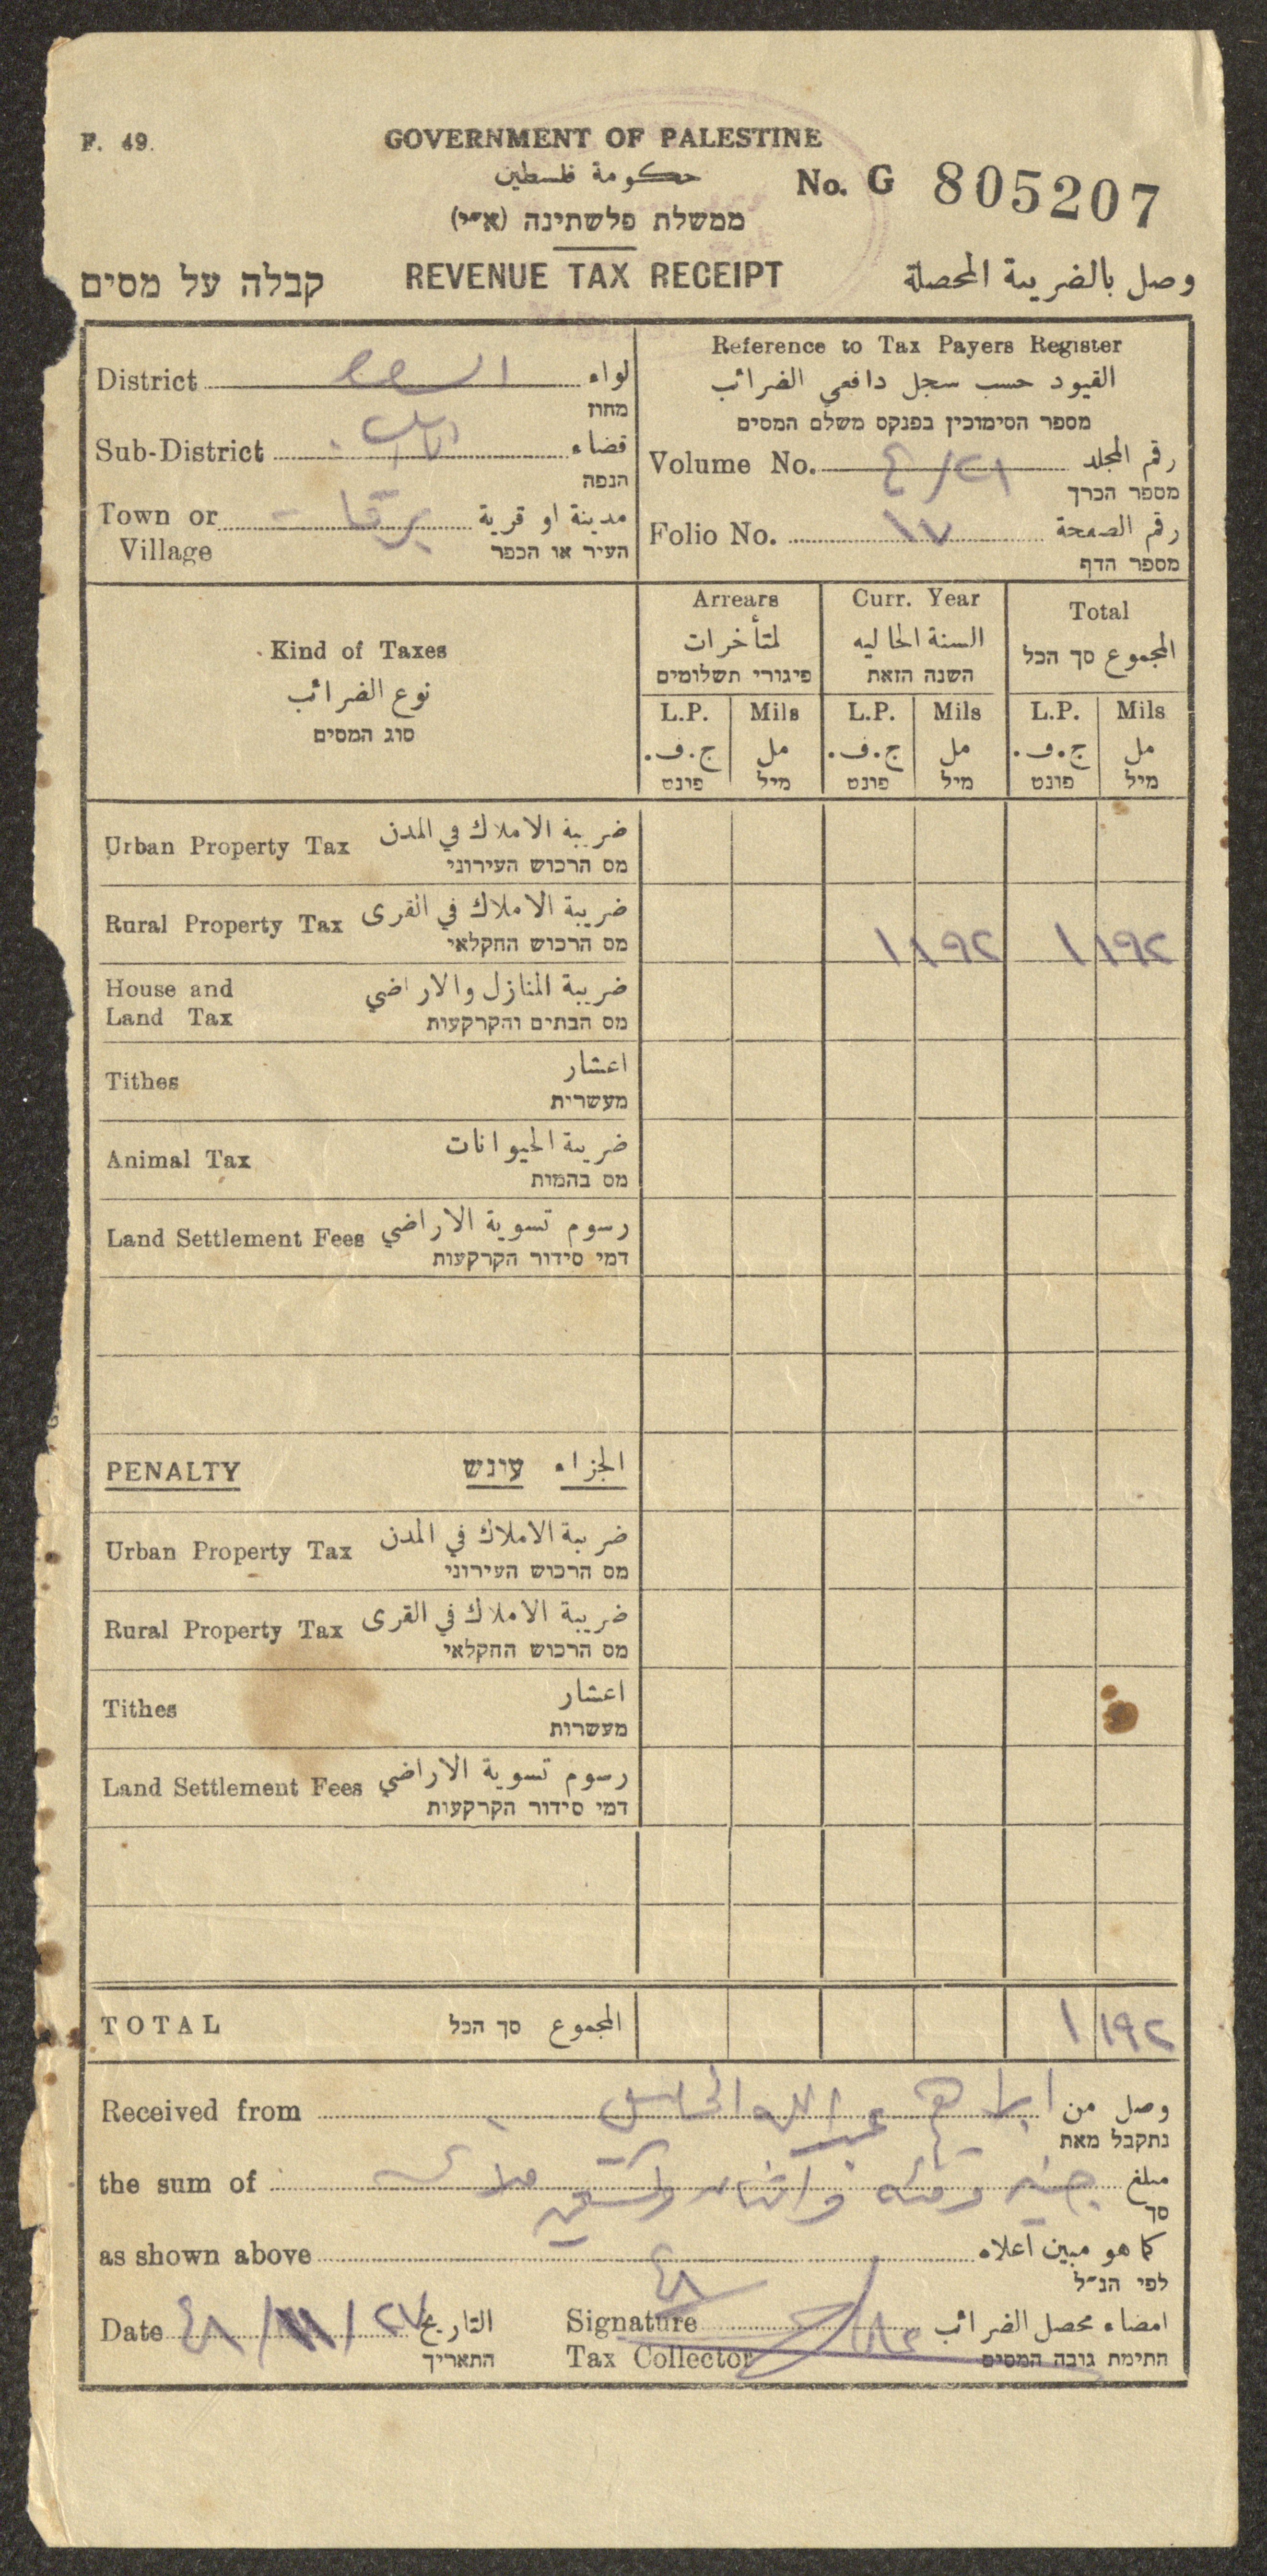 F. 49.
GOVERNMENT OF PALESTINE
حكومة فلسطين
No. G 805207
ממשלת פלשתינה (א״י)
קבלה על מסים REVENUE TAX RECEIPT وصل بالضريبة المحصلة
District لواء
מחוז
Sub-District قضاء
הנפה
Town or برقا مدينة او قرية
Village העיר או הכפר
Reference to Tax Payers Register
القيود حسب سجل دافعي الضرائب
מספר הסימוכין בפנקס משלם המסים
Volume No. رقم المجلد
מספר הכרך
Folio No. ١٧ رقم الصفحة
מספר הדף
Kind of Taxes
نوع الضرائب
סוג המסים
Arrears Curr. Year Total
لمتأخرات السنة الحاليه المجموع סך הכל
פיגורי תשלומים השנה הזאת
L.P. Mils L.P. Mils L.P. Mils
ج.ف. مل ج.ف. مل ج.ف. مل
פונט מיל פונט מיל פונט מיל
Urban Property Tax ضريبة الاملاك في المدن
מס הרכוש העירוני
Rural Property Tax ضريبة الاملاك في القرى ١ ١٩٢ ١ ١٩٢
מס הרכוש החקלאי
House and ضريبة المنازل والاراضي
Land Tax מס הבתים והקרקעות
Tithes اعشار
מעשרית
Animal Tax ضريبة الحيوانات
מס בהמות
Land Settlement Fees رسوم تسوية الاراضي
דמי סידור הקרקעות
PENALTY עונש الجزاء
Urban Property Tax ضريبة الاملاك في المدن
מס הרכוש העירוני
Rural Property Tax ضريبة الاملاك في القرى
מס הרכוש החקלאי
Tithes اعشار
מעשרות
Land Settlement Fees رسوم تسوية الاراضي
דמי סידור הקרקעות
TOTAL המجموع סך הכל ١ ١٩٢
Received from ابراهيم عبد الله وصل من
נתקבל מאת
the sum of جنيه ومئه واثنان وتسعين ملا مبلغ
סך
as shown above كما هو مبين اعلاه
לפי הנ״ל
Date ٢٧/١١/٤٨ التاريخ Signature امضاء محصل الضرائب
התאריך Tax Collector חתימת גובה המסים